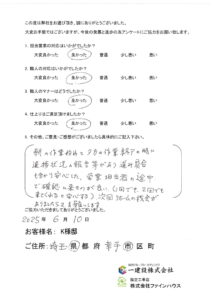 この度は弊社をお選び頂き、誠にありがとうございました。
大変お手数ではございますが、今後の発展と進歩の為アンケートにご協力をお願い致します。
1. 担当営業の対応はいかがでしたか？
大変良かった 良かった 普通 少し悪い 悪い
2. 職人の対応はいかがでしたか？
大変良かった 良かった 普通 少し悪い 悪い
3. 職人のマナーはどうでしたか？
大変良かった 良かった 普通 少し悪い 悪い
4. 仕上がりに満足頂けましたか？
大変良かった 良かった 普通 少し悪い 悪い
5. その他、ご意見・ご感想がございましたら具体的にご記入下さい。
朝の作業始めと夕方の作業終了の時に
進捗状況の報告等があり
切り安心した。営業担当者の途中
で確認に来たのが良い（1回でも2回でも
来てくれると安心する）次回
ありましたらお願いします
ご協力いただきまして、ありがとうございました。
2025年 6月 10日
お客様名: K様邸
ご住所: 埼玉 県 都 府 幸手 市 区 町
一建設株式会社
株式会社ファインハウス